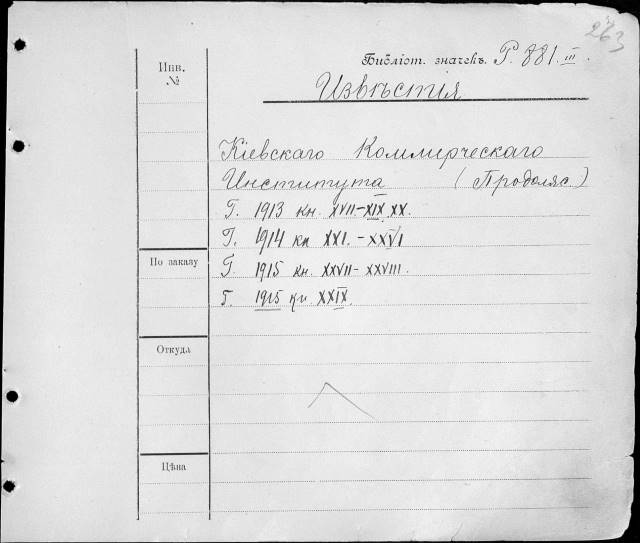 263
Инв. №
Библіот. значекъ. P. 881. III.
Извѣстія
Кіевскаго Коммерческаго
Института (Продолж.)
Г. 1913 кн. XVII-XIX. XX.
Г. 1914 кн XXI. - XXVI
По заказу
Г 1915 кн. XXVII- XXVIII.
Г. 1915 кн. XXIX.
Откуда
Цѣна